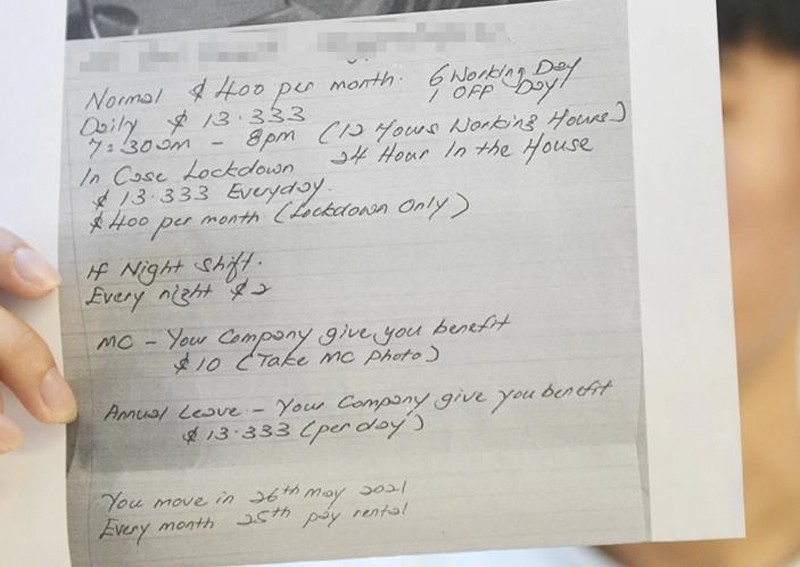 Normal $400 per month. 6 Working Day
1 OFF Day
Daily $13.333
7:30am - 8pm (12 Hours Working Hours)
In Case Lockdown 24 Hour In the House
$13.333 Everyday.
$400 per month (Lockdown Only)
If Night Shift.
Every night $2
MC - Your Company give you benefit
$10 (Take MC Photo)
Annual Leave - Your Company give you benefit
$13.333 (per day)
You move in 26th may 2021
Every month 25th pay rental